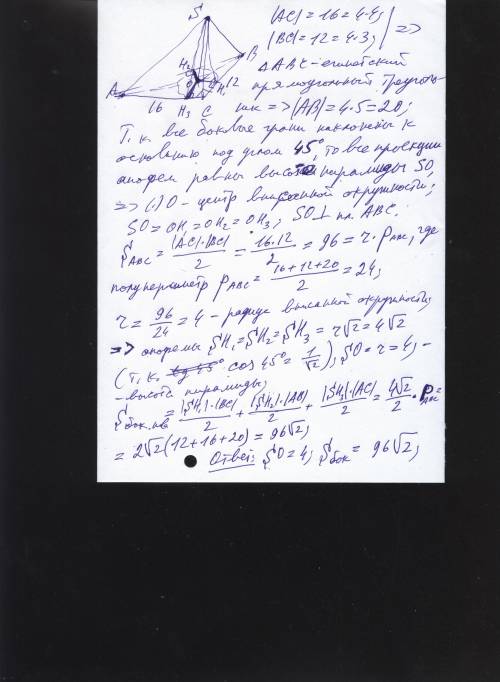 S
|AC|=16=4·4;
|BC|=12=4·3;
=>
A
B
C
H₂
H₃
O
16
12
ΔABC-египетский
прямоугольный треуголь-
ник => |AB|=4·5=20;
Т. к. все боковые грани наклонены к
основанию под углом 45°, то все проекции
апофем равны высоте пирамиды SO,
=> (·)O - центр вписанной окружности;
SO=OH₁=OH₂=OH₃; SO⊥ пл. ABC.
S_ABC = |AC|·|BC|/2 = 16·12/2 = 96 = r·p_ABC, где
полупериметр p_ABC = 16+12+20/2 = 24;
r = 96/24 = 4 - радиус вписанной окружности;
=> апофемы SH₁=SH₂=SH₃ = r√2 = 4√2
(т. к. cos 45° = 1/√2); SO = r = 4, -
- высота пирамиды;
S бок.пов = |SH₁|·|BC|/2 + |SH₂|·|AB|/2 + |SH₃|·|AC|/2 = 4√2/2 · P_ABC =
= 2√2(12+16+20) = 96√2;
Ответ: SO=4; S бок = 96√2;